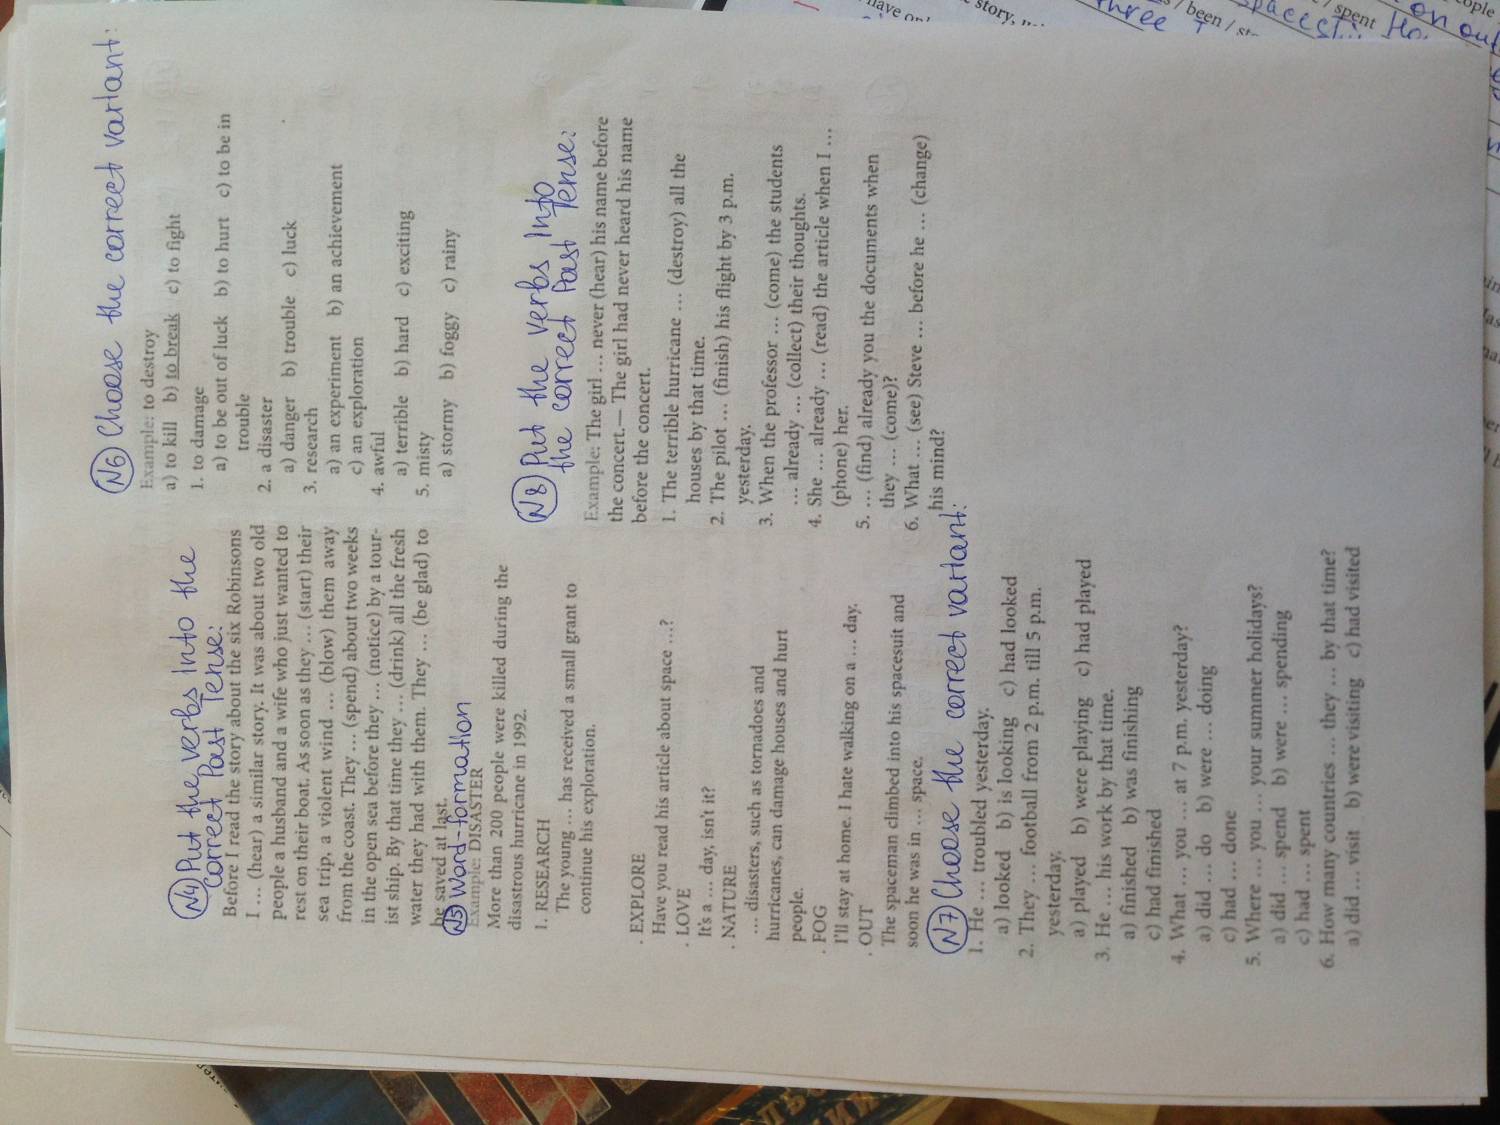 N4 Put the verbs into the
correct Past Tense:
Before I read the story about the six Robinsons
I … (hear) a similar story. It was about two old
people a husband and a wife who just wanted to
rest on their boat. As soon as they … (start) their
sea trip, a violent wind … (blow) them away
from the coast. They … (spend) about two weeks
in the open sea before they … (notice) by a tour-
ist ship. By that time they … (drink) all the fresh
water they had with them. They … (be glad) to
be saved at last.
N5 Word-formation
Example: DISASTER
More than 200 people were killed during the
disastrous hurricane in 1992.
1. RESEARCH
The young … has received a small grant to
continue his exploration.
. EXPLORE
Have you read his article about space …?
. LOVE
It's a … day, isn't it?
. NATURE
… disasters, such as tornadoes and
hurricanes, can damage houses and hurt
people.
. FOG
I'll stay at home. I hate walking on a … day.
. OUT
The spaceman climbed into his spacesuit and
soon he was in … space.
N7 Choose the correct variant:
1. He … troubled yesterday.
a) looked b) is looking c) had looked
2. They … football from 2 p.m. till 5 p.m.
yesterday.
a) played b) were playing c) had played
3. He … his work by that time.
a) finished b) was finishing
c) had finished
4. What … you … at 7 p.m. yesterday?
a) did … do b) were … doing
c) had … done
5. Where … you … your summer holidays?
a) did … spend b) were … spending
c) had … spent
6. How many countries … they … by that time?
a) did … visit b) were visiting c) had visited
N6 Choose the correct variant:
Example: to destroy
a) to kill b) to break c) to fight
1. to damage
a) to be out of luck b) to hurt c) to be in
trouble
2. a disaster
a) danger b) trouble c) luck
3. research
a) an experiment b) an achievement
c) an exploration
4. awful
a) terrible b) hard c) exciting
5. misty
a) stormy b) foggy c) rainy
N8 Put the verbs into
the correct Past Tense:
Example: The girl … never (hear) his name before
the concert.— The girl had never heard his name
before the concert.
1. The terrible hurricane … (destroy) all the
houses by that time.
2. The pilot … (finish) his flight by 3 p.m.
yesterday.
3. When the professor … (come) the students
… already … (collect) their thoughts.
4. She … already … (read) the article when I …
(phone) her.
5. … (find) already you the documents when
they … (come)?
6. What … (see) Steve … before he … (change)
his mind?
story,
three
/ been /
/ spent
on out